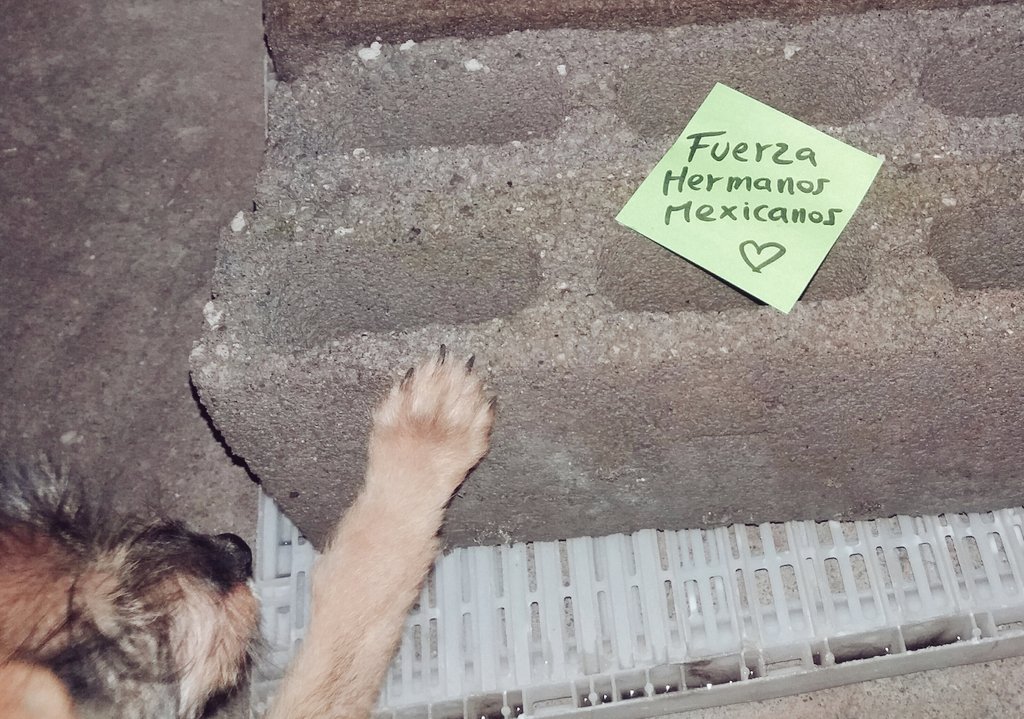 Fuerza
Hermanos
Mexicanos
♡